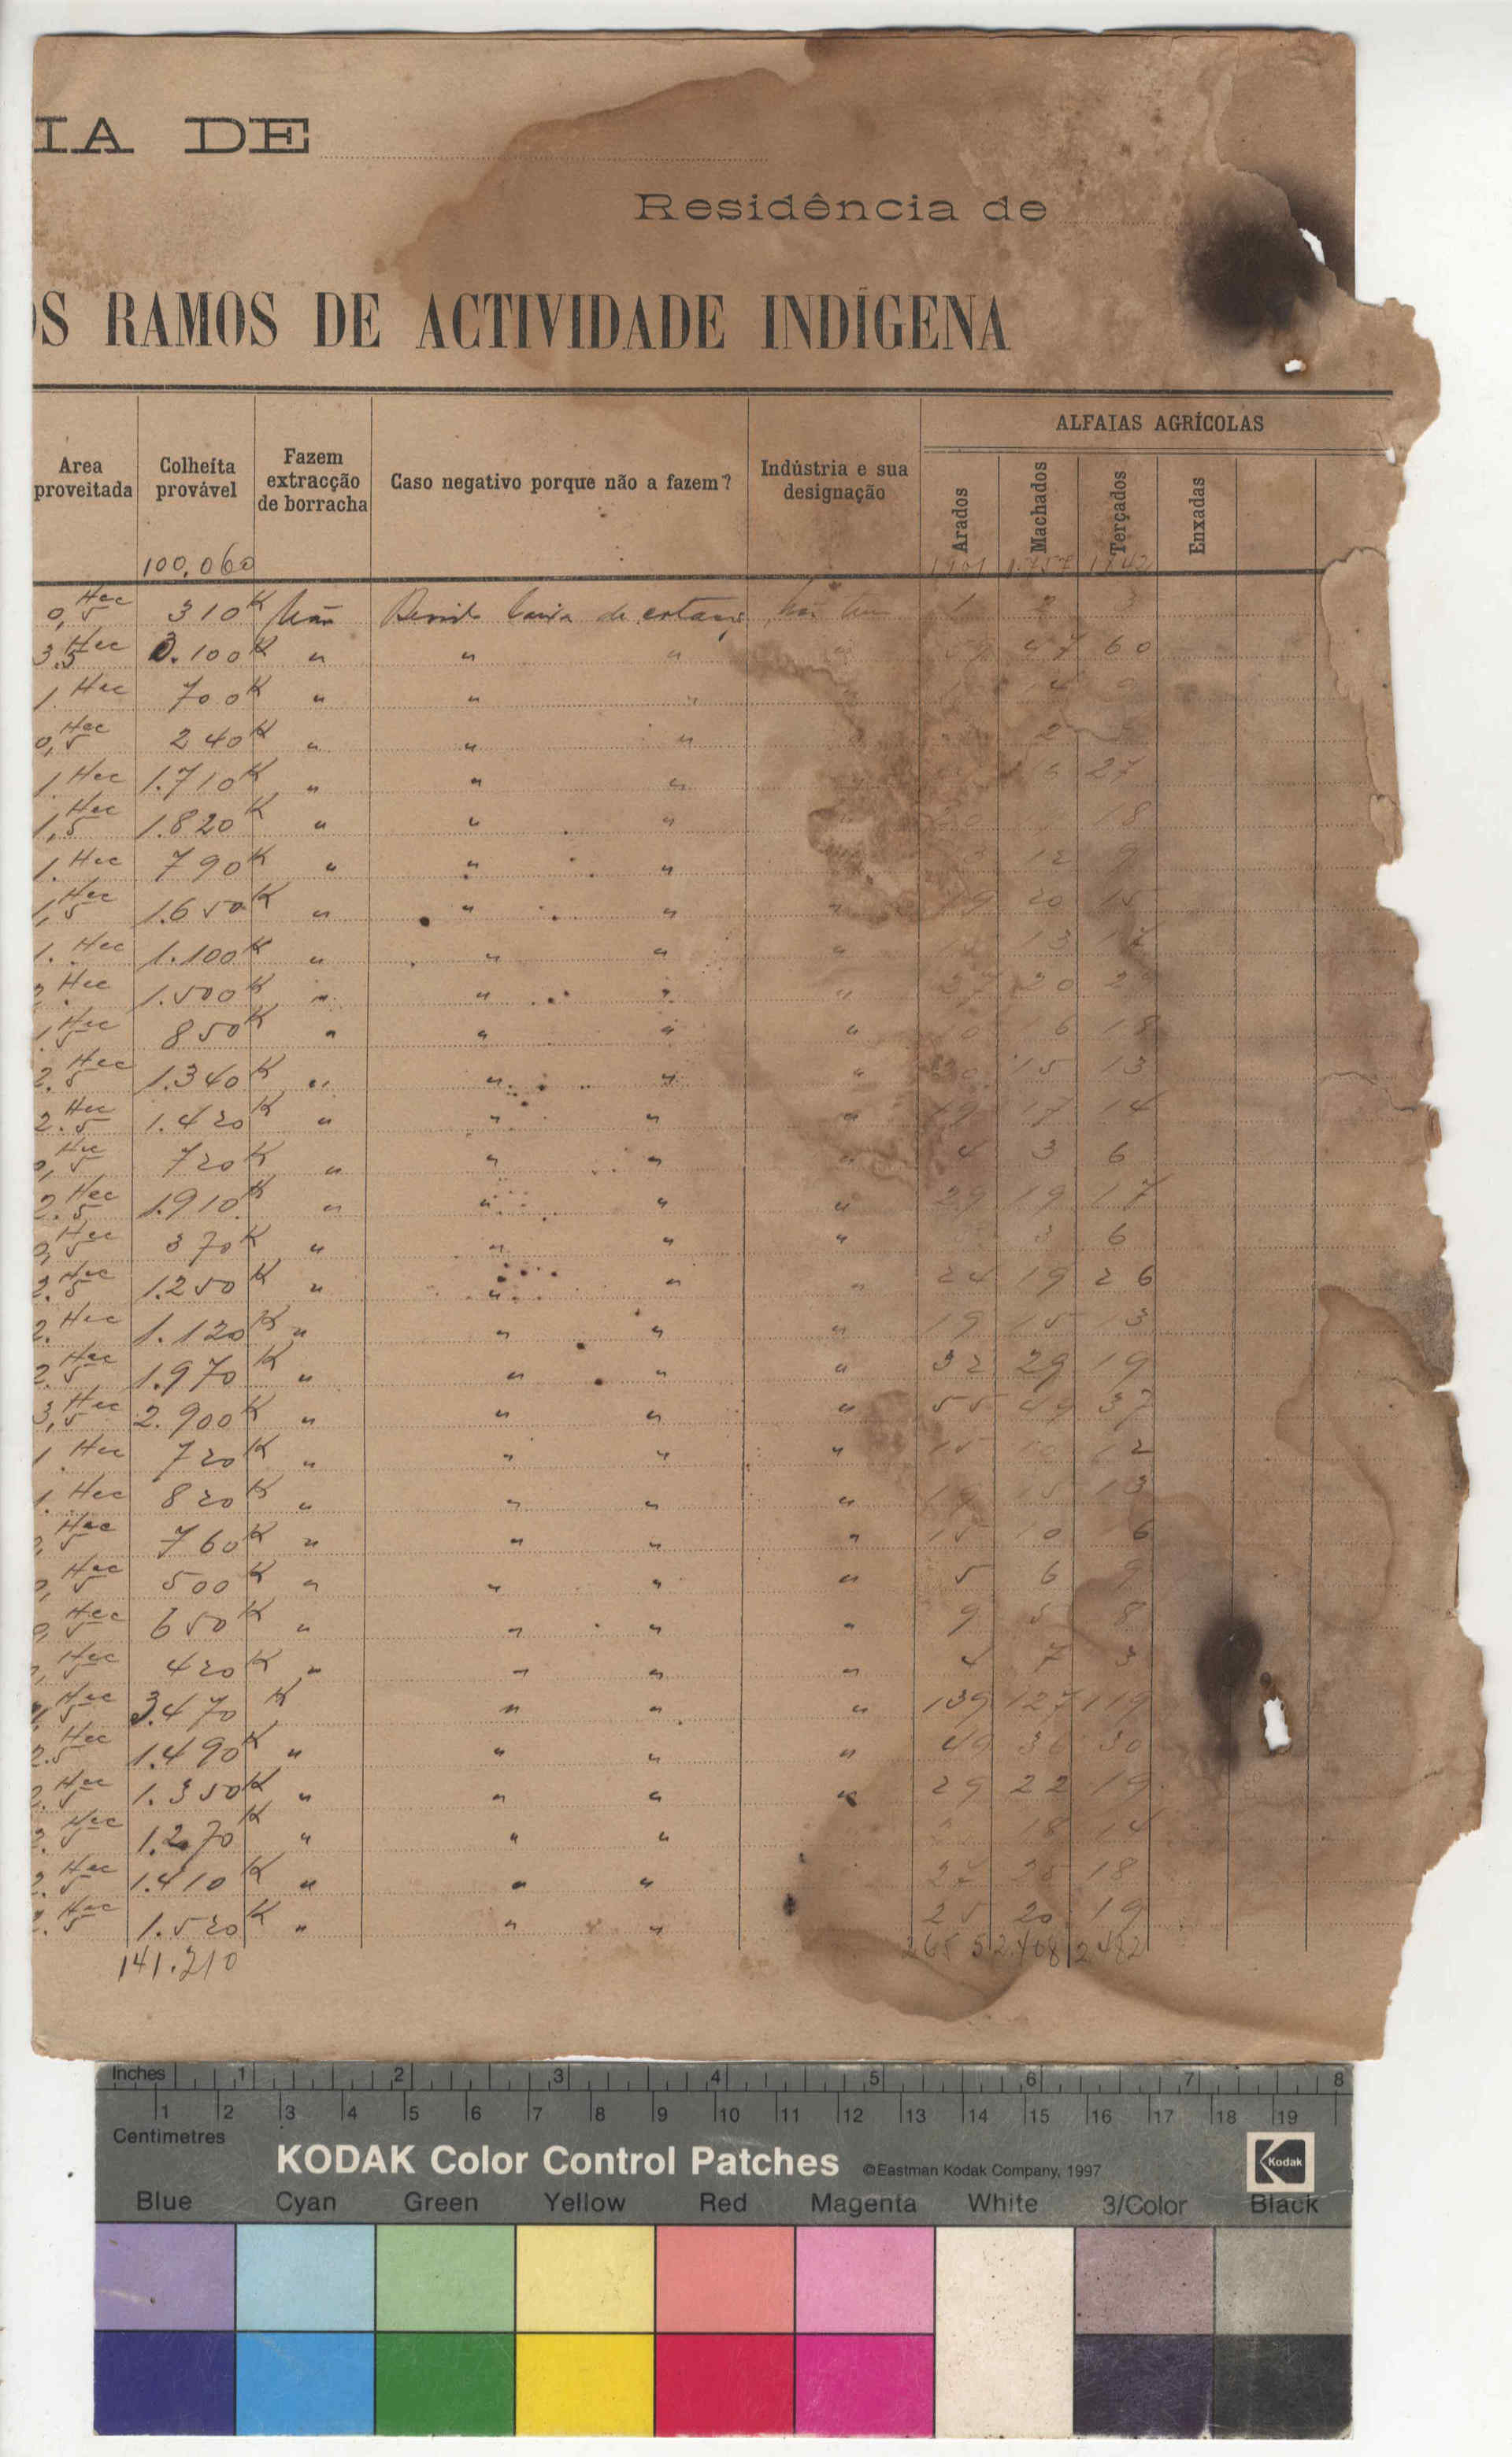 IA DE
Residência de
OS RAMOS DE ACTIVIDADE INDÍGENA
Area proveitada
Colheita provável
Fazem extracção de borracha
Caso negativo porque não a fazem?
Indústria e sua designação
ALFAIAS AGRÍCOLAS
Arados
Machados
Terçados
Enxadas
100.060
0,5 Hec 310 K Não não tem 1 2 3
3.5 Hec 3.100 K " " " " 59 47 60
1 Hec 700 K " " " 14
0,5 Hec 240 K " " " 2
1 Hec 1.710 K " " " 27
1,5 Hec 1.820 K " " " 18
1. Hec 790 K " " " 12 9
1,5 Hec 1.650 K " " " " 20 15
1. Hec 1.100 K " " " " 13 17
2. Hec 1.500 K " " " " 27 20
Hec 850 K " " " " 6 18
2.5 Hec 1.340 K " " " " 15 13
2.5 Hec 1.420 K " " " " 19 17 14
0,5 Hec 720 K " " " " 4 3 6
2.5 Hec 1.910 K " " " " 29 19 17
0,5 Hec 370 K " " " " 3 6
2.5 Hec 1.250 K " " " " 24 19 26
2. Hec 1.120 K " " " " 19 15 13
2.5 Hec 1.970 K " " " " 32 29 19
3,5 Hec 2.900 K " " " " 55 49 37
1. Hec 720 K " " " " 15 10 12
1. Hec 820 K " " " " 19 15 13
5 Hec 760 K " " " " 15 10 6
5 Hec 500 K " " " " 5 6 9
5 Hec 650 K " " " " 9 5 8
5 Hec 420 K " " " " 4 7 3
5 Hec 3.470 K " " " 139 127 119
2.5 Hec 1.490 K " " " " 49 36 30
2.5 Hec 1.350 K " " " " 29 22 19
2.5 Hec 1.270 K " " " 18 14
2.5 Hec 1.410 K " " " 25 18
2.5 Hec 1.520 K " " " 25 20 19
141.210 2655 2.468 2.482
Inches 1 2 3 4 5 6 7 8
1 2 3 4 5 6 7 8 9 10 11 12 13 14 15 16 17 18 19
Centimetres
KODAK Color Control Patches ©Eastman Kodak Company, 1997 Kodak
Blue Cyan Green Yellow Red Magenta White 3/Color Black